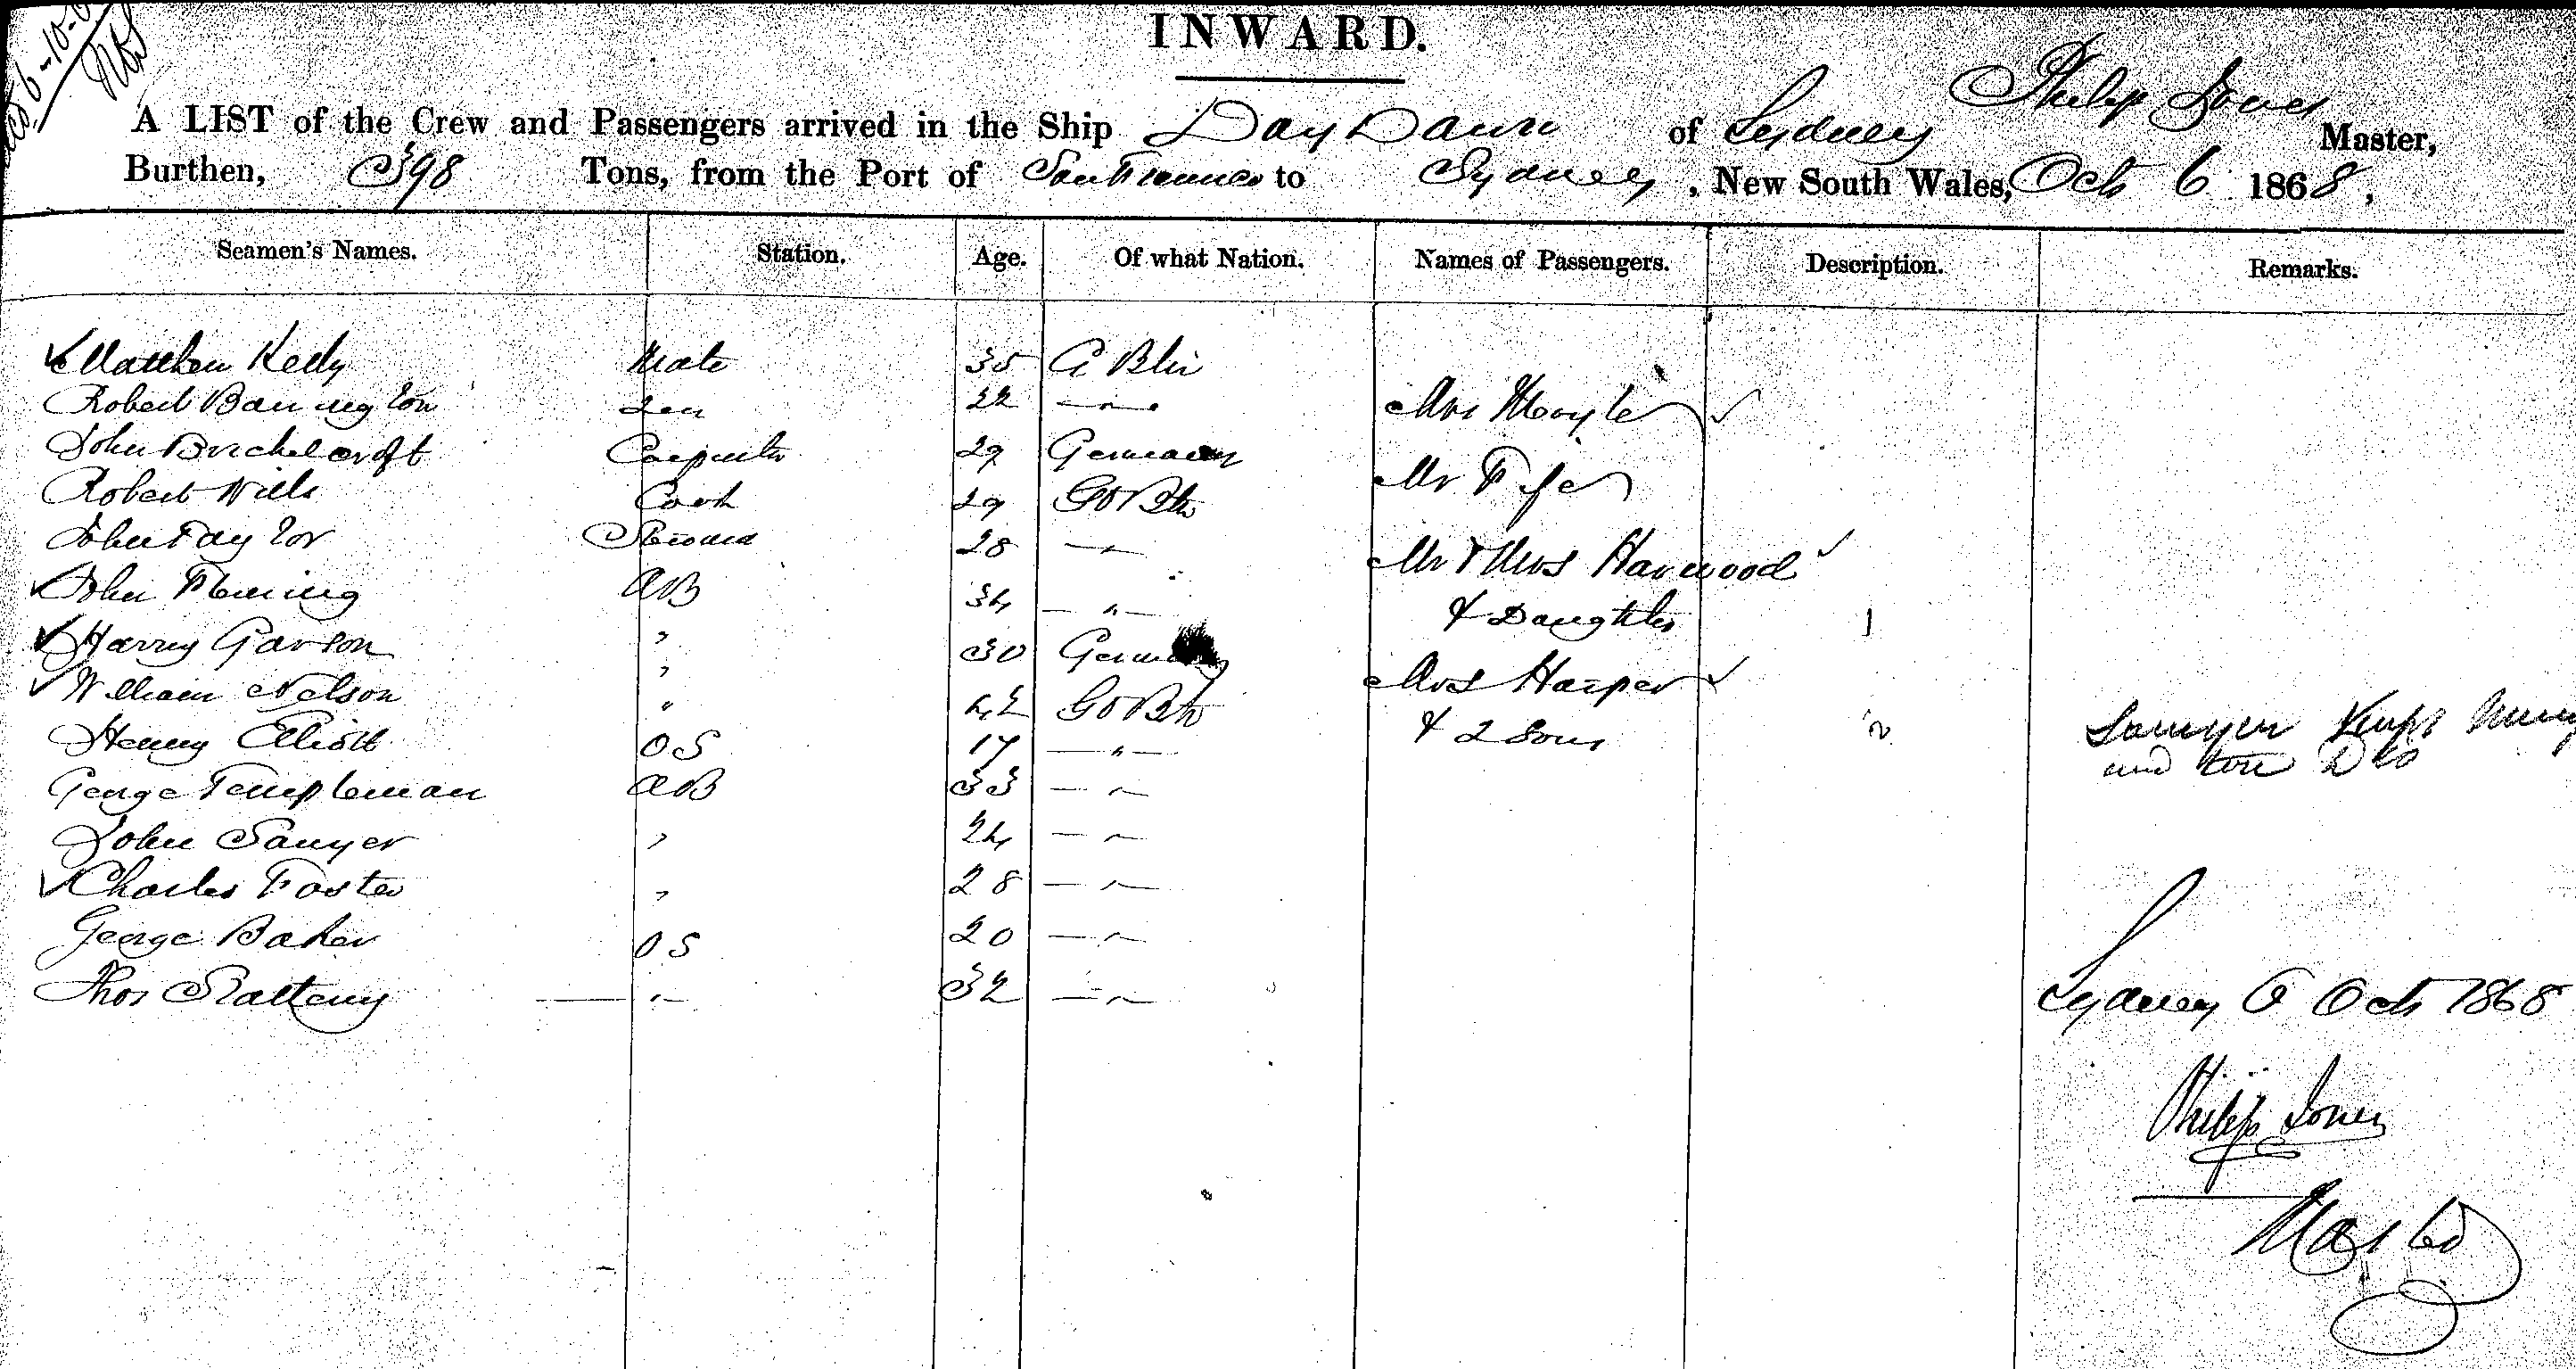 INWARD.
Philip Jones
A LIST of the Crew and Passengers arrived in the Ship Day Dawn of Sydney Master,
Burthen, 398 Tons, from the Port of San Francisco to Sydney, New South Wales, Oct 6 1868,
Seamen's Names. Station. Age. Of what Nation. Names of Passengers. Description. Remarks.
Matthew Kelly Mate 35 G Btn
Robert Bannington 2nd 22 —"— Mrs Hoyle
John Carpenter 29 Germany
Robert Wills Cook 29 Gt Btn Mr Fife
John Taylor Steward 28 —"— Mr & Mrs Harwood
John Fleming AB 34 —"— & Daughter 1
Harry Garson " 30 Germany
William Nelson " 42 Gt Btn Mrs Harper
Henry Elliott OS 17 —"— & 2 Sons 2
George Templeman AB 33 —"—
John Sawyer " 24 —"—
Charles Foster " 28 —"—
George Baker OS 20 —"—
Thos Slattery —"— 32 —"—
Sydney 6 Oct 1868
Philip Jones
Master